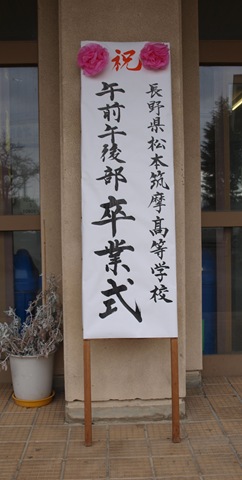 祝
長野県松本筑摩高等学校
午前午後部 卒業式